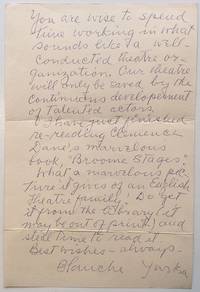 You are wise to spend
time working in what
sounds like a well-
conducted theatre or-
ganization. Our theatre
will only be saved by the
continuous development
of talented actors.
I have just finished
re-reading Clemence
Dane's marvelous
book, "Broome Stages".
What a marvelous pic-
ture it gives of an English
Theatre family! Do get
it from the library (it
may be out of print) and
steal time to read it.
Best wishes - always -
Blanche Yurka